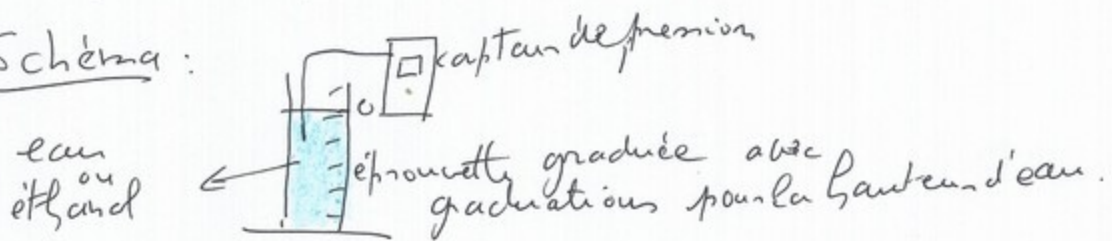 Schéma :
capteur de pression
0
eau
ou
éthanol
éprouvette graduée avec
graduations pour la hauteur d'eau.